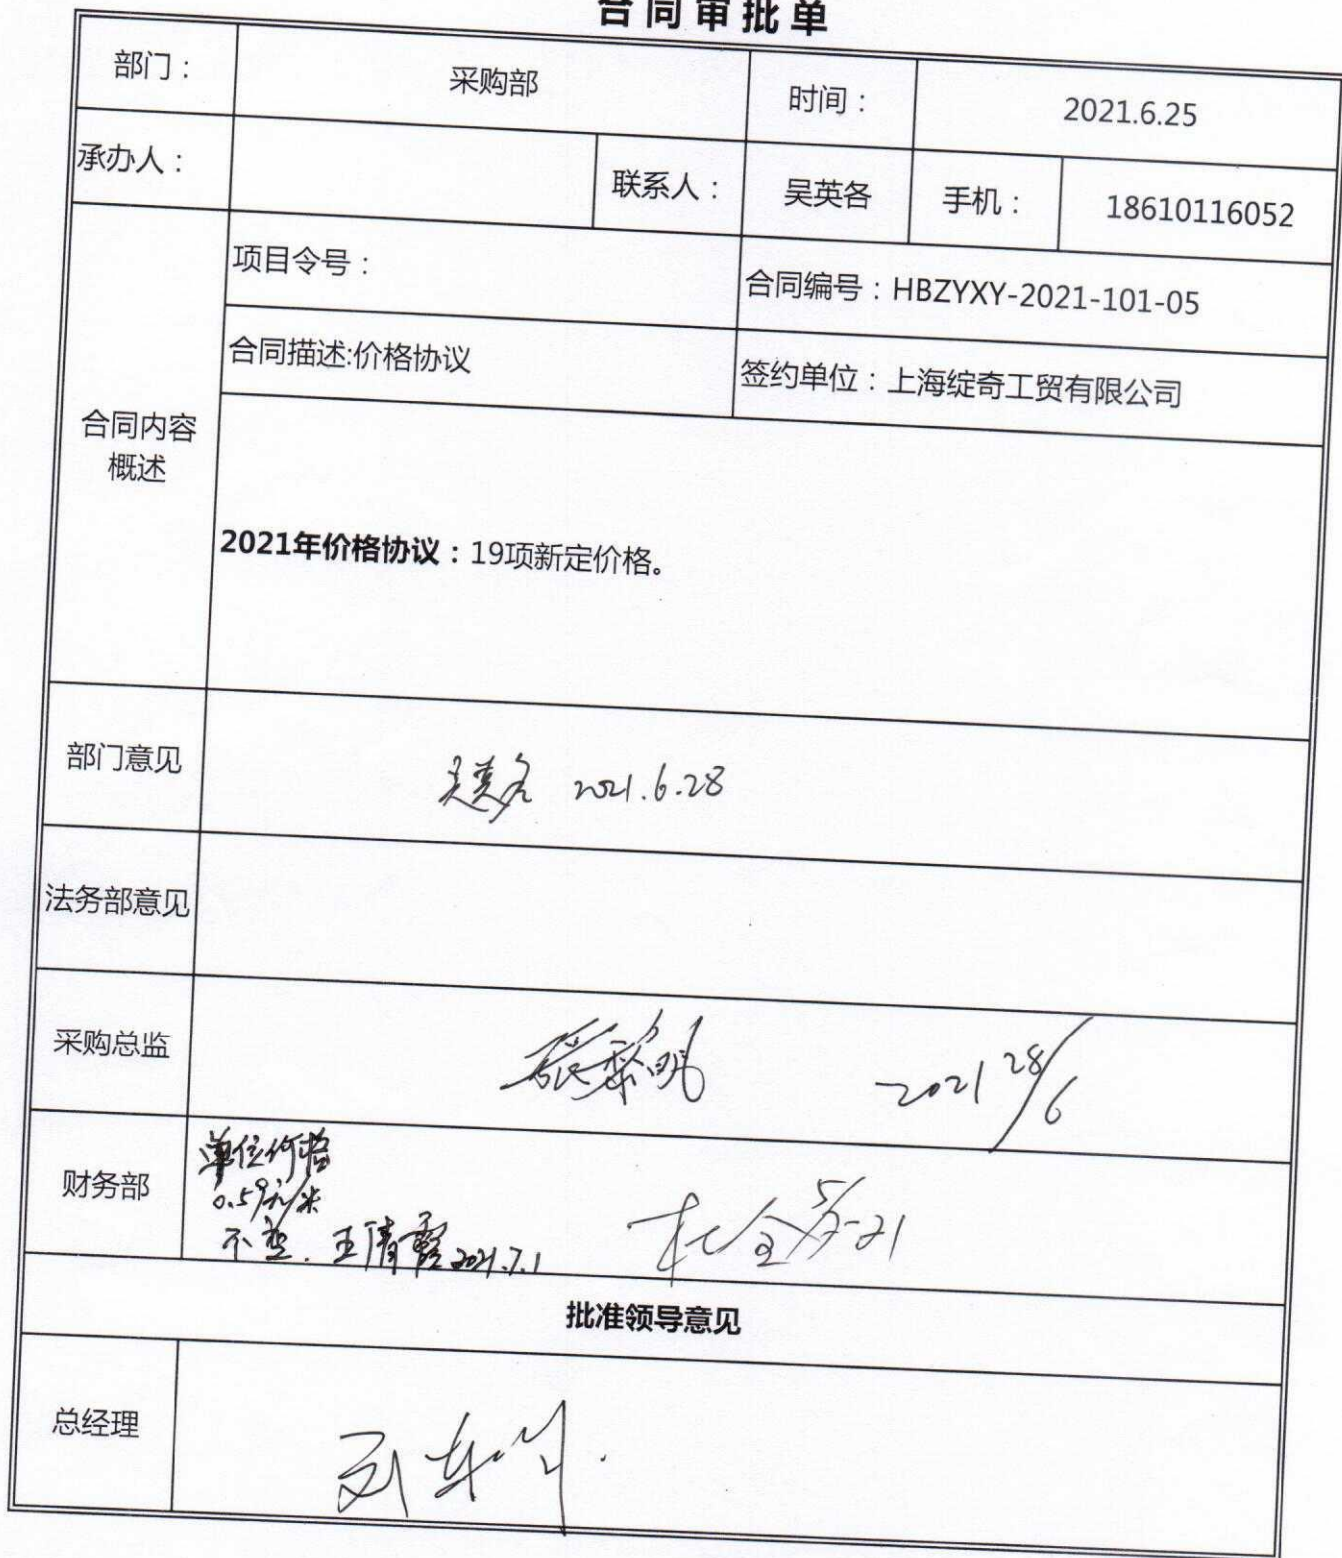 合同审批单
部门： 采购部 时间： 2021.6.25
承办人： 联系人： 吴英各 手机： 18610116052
合同内容概述
项目令号： 合同编号：HBZYXY-2021-101-05
合同描述:价格协议 签约单位：上海绽奇工贸有限公司
2021年价格协议：19项新定价格。
部门意见 吴英各 2021.6.28
法务部意见
采购总监 2021 28/6
财务部
单位价格
0.59元/米
不变. 王倩 2021.7.1
批准领导意见
总经理